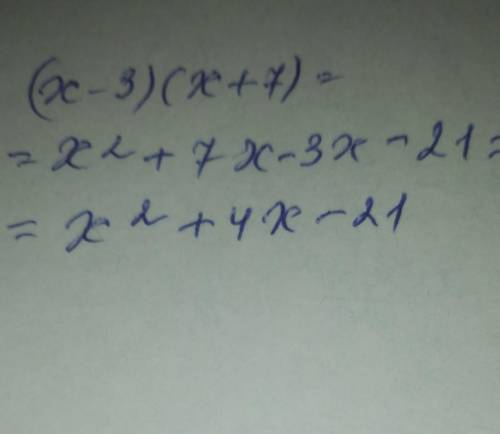 (x-3)(x+7)=
=x²+7x-3x-21=
=x²+4x-21